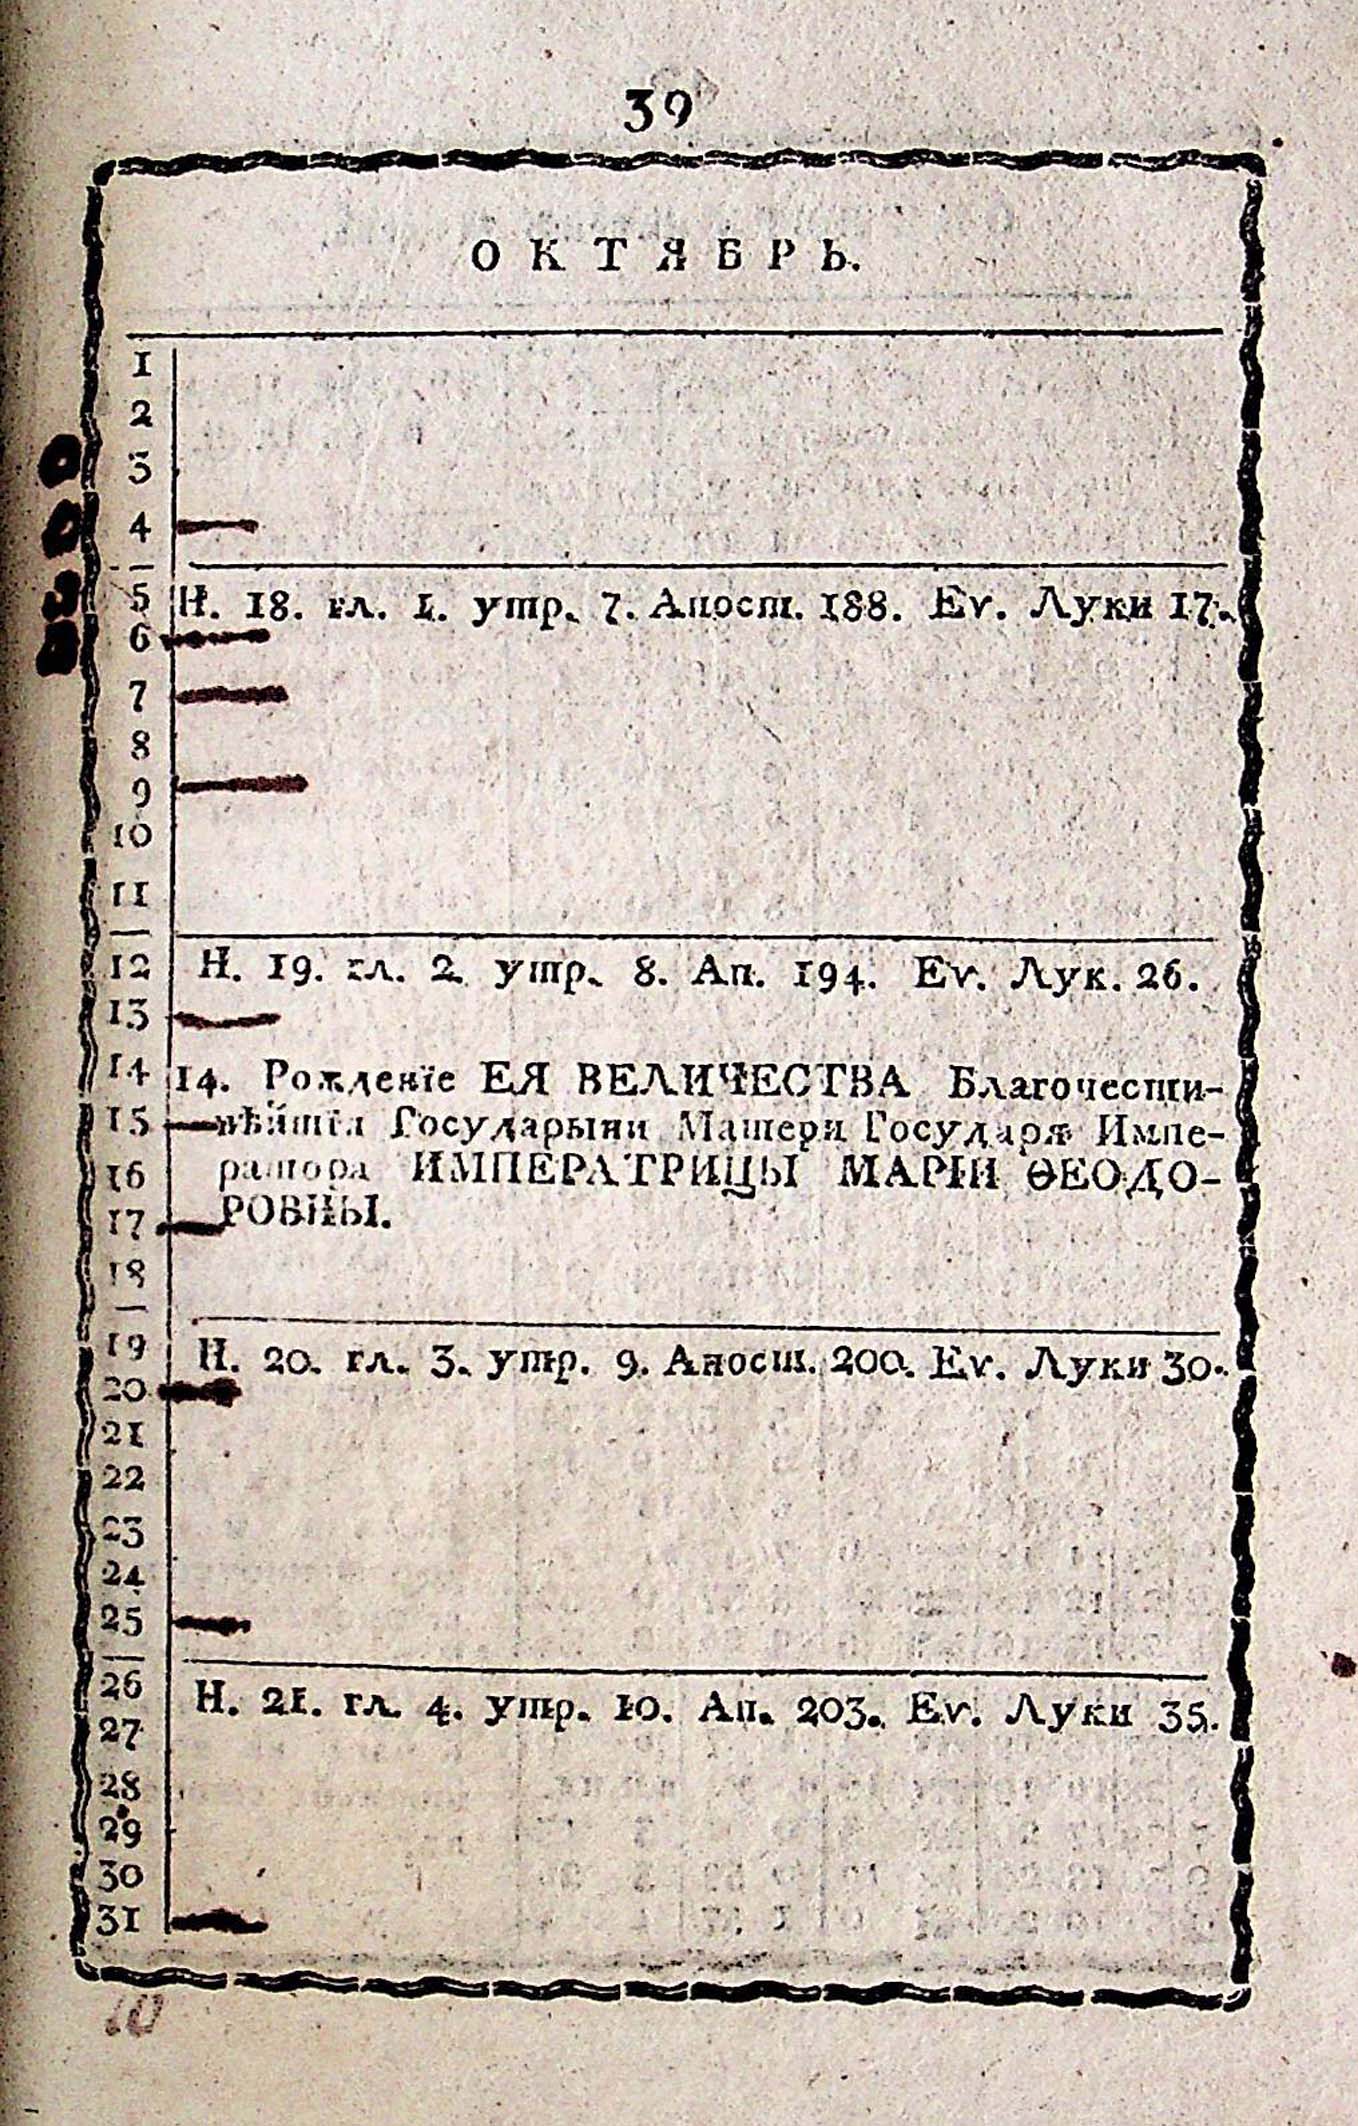 39
ОКТЯБРЬ.
1
2
3
4
5 Н. 18. гл. 1. утр. 7. Апост. 188. Еѵ. Луки 17.
6
7
8
9
10
11
12 Н. 19. гл. 2. утр. 8. Ап. 194. Еѵ. Лук. 26.
13
14 14. Рожденїе ЕЯ ВЕЛИЧЕСТВА Благочести-
15 вѣйшїя Государыни Матери Государя Импе-
16 ратора ИМПЕРАТРИЦЫ МАРІИ ѲЕОДО-
17 РОВНЫ.
18
19 Н. 20. гл. 3. утр. 9. Апост. 200. Еѵ. Луки 30.
20
21
22
23
24
25
26 Н. 21. гл. 4. утр. 10. Ап. 203. Еѵ. Луки 35.
27
28
29
30
31
10